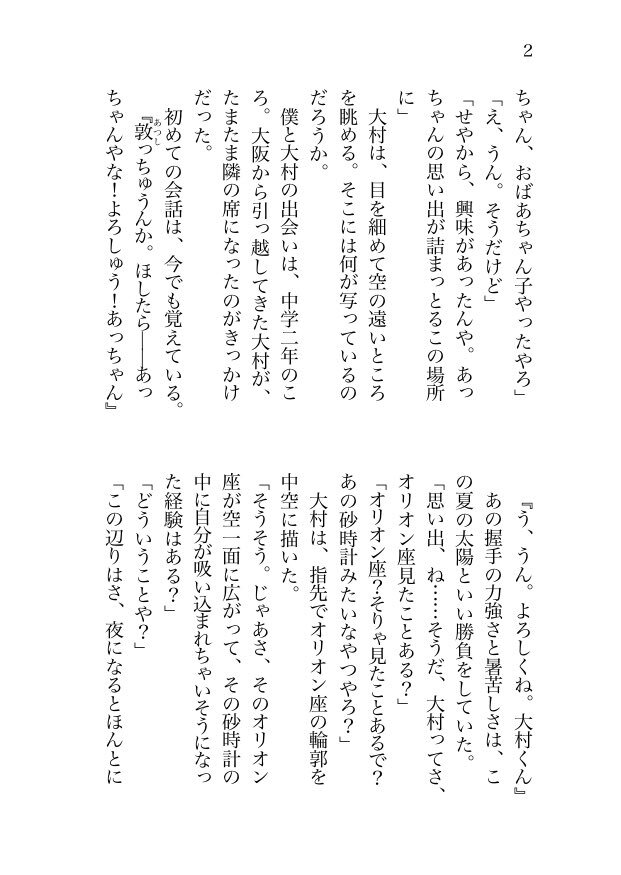 2
ちゃん、おばあちゃん子やったやろ」
「え、うん。そうだけど」
「せやから、興味があったんや。あっ
ちゃんの思い出が詰まっとるこの場所
に」
　大村は、目を細めて空の遠いところ
を眺める。そこには何が写っているの
だろうか。
　僕と大村の出会いは、中学二年のこ
ろ。大阪から引っ越してきた大村が、
たまたま隣の席になったのがきっかけ
だった。
　初めての会話は、今でも覚えている。
『敦っちゅうんか。ほしたら――あっ
あつし
ちゃんやな！よろしゅう！あっちゃん』
『う、うん。よろしくね。大村くん』
　あの握手の力強さと暑苦しさは、こ
の夏の太陽といい勝負をしていた。
「思い出、ね……そうだ、大村ってさ、
オリオン座見たことある？」
「オリオン座？そりゃ見たことあるで？
あの砂時計みたいなやつやろ？」
　大村は、指先でオリオン座の輪郭を
中空に描いた。
「そうそう。じゃあさ、そのオリオン
座が空一面に広がって、その砂時計の
中に自分が吸い込まれちゃいそうになっ
た経験はある？」
「どういうことや？」
「この辺りはさ、夜になるとほんとに